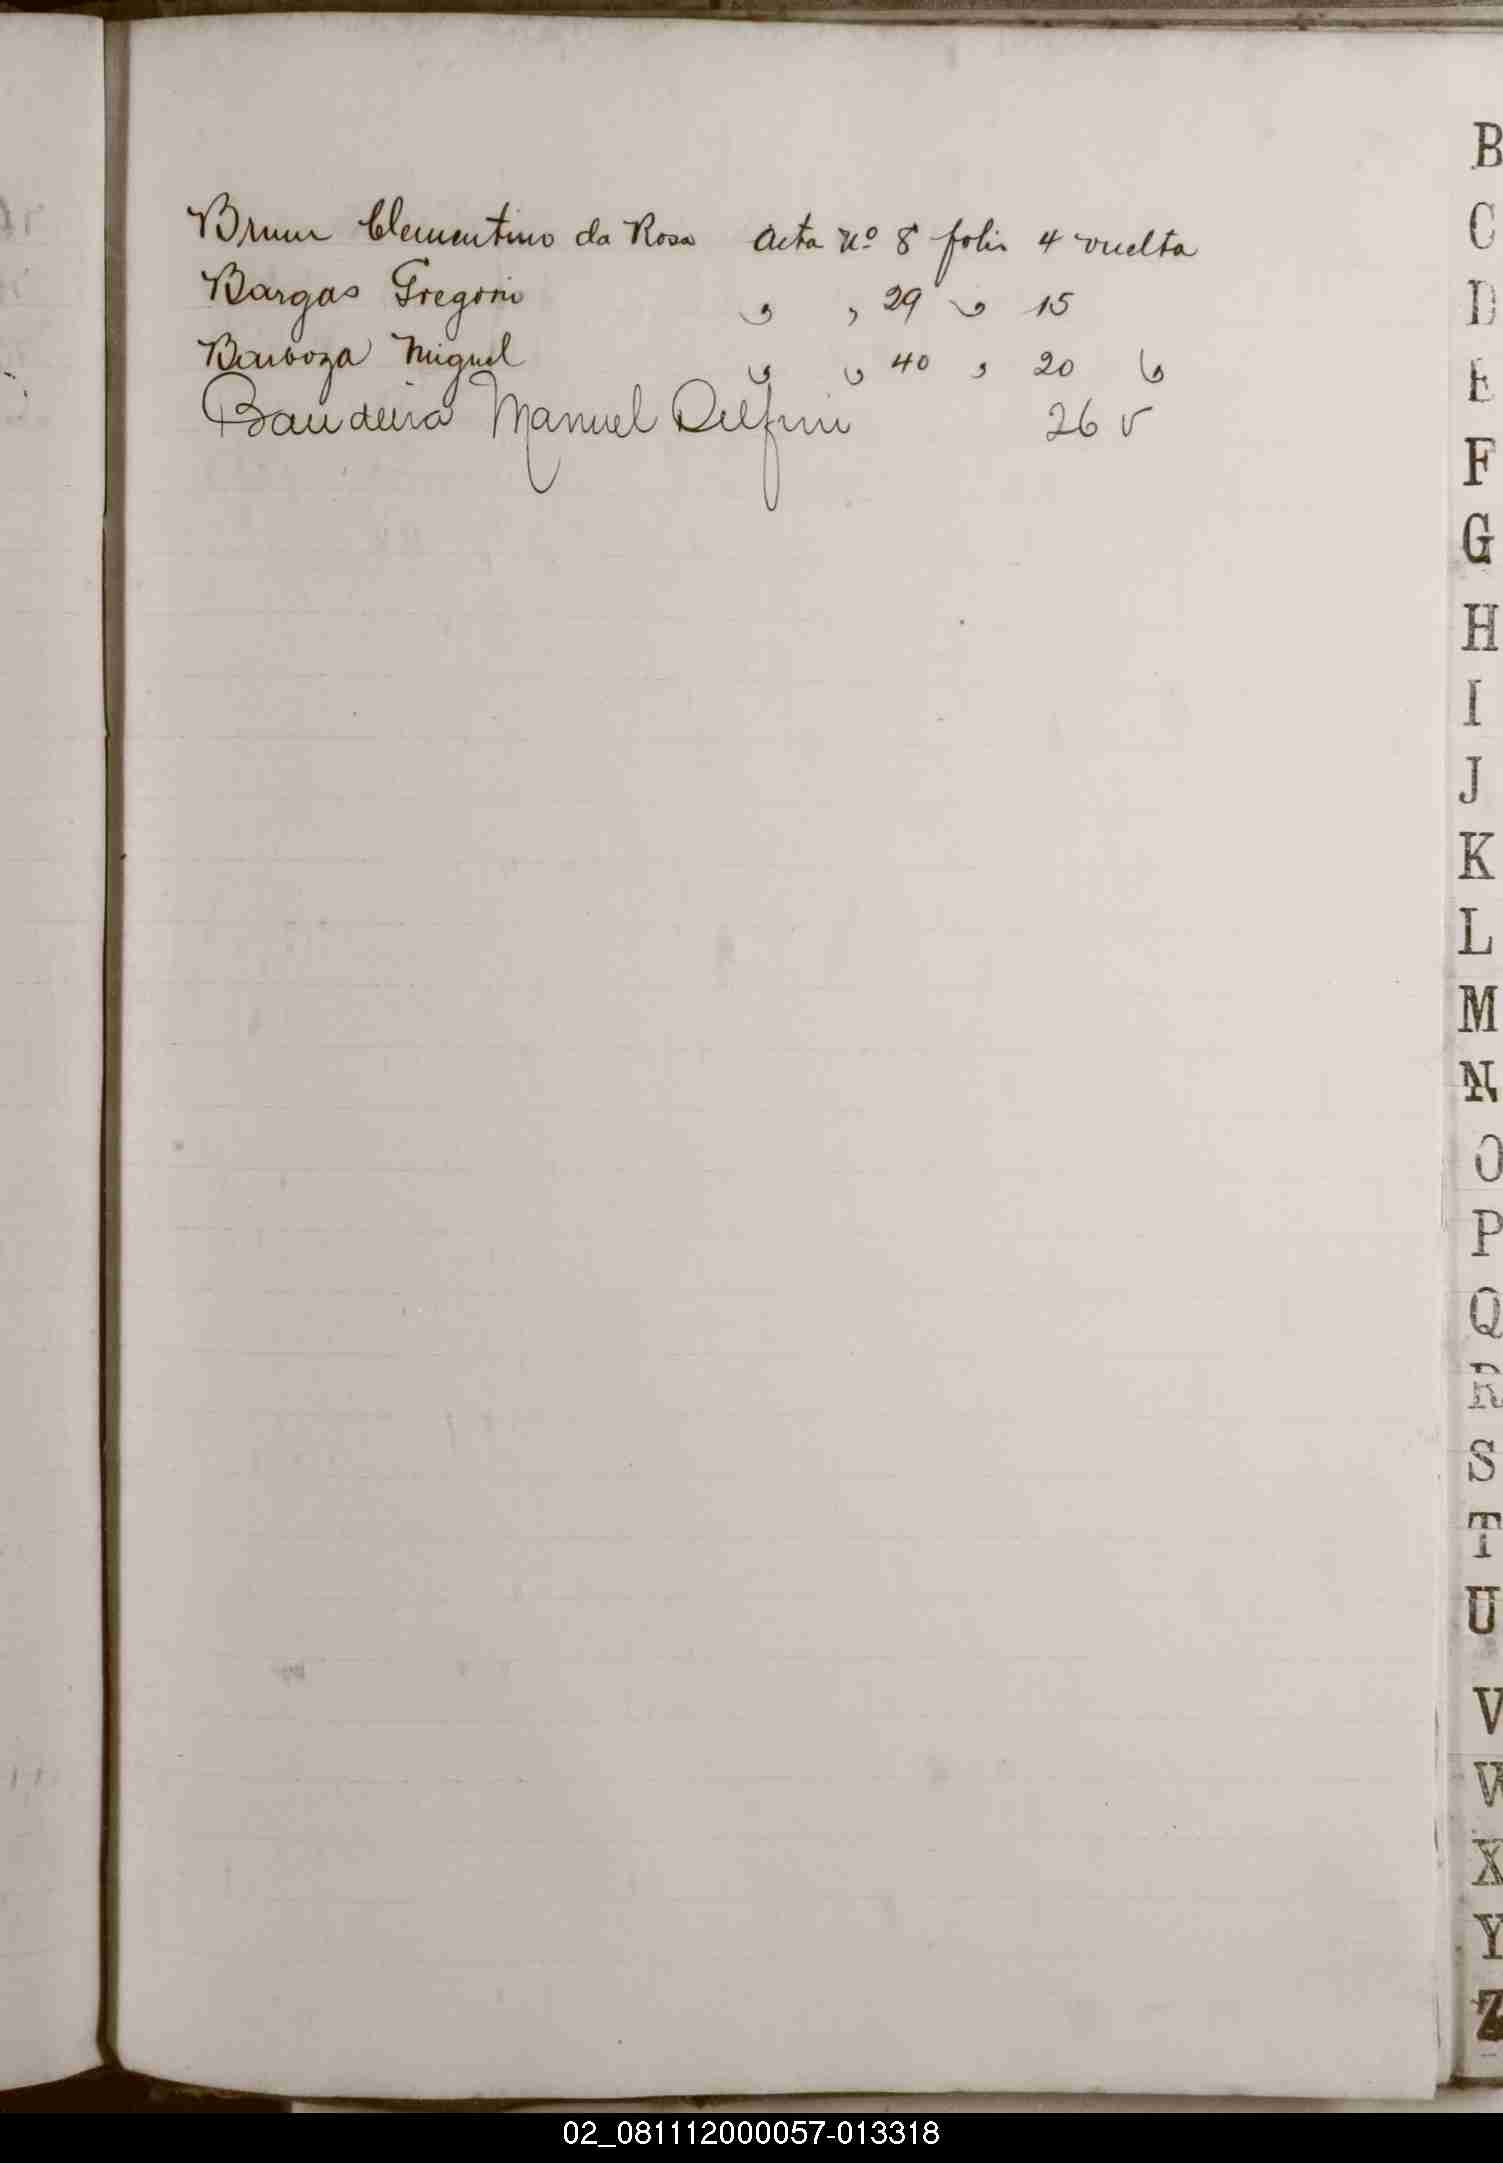 B
C
D
E
F
G
H
I
J
K
L
M
N
O
P
Q
R
S
T
U
V
W
X
Y
Z
Brum Clementino da Rosa Acta Nº 8 folio 4 vuelta
Bargas Gregorio " " 29 " 15
Barboza Miguel " " 40 " 20 "
Bandeira Manuel Delfin 26 v
02_081112000057-013318